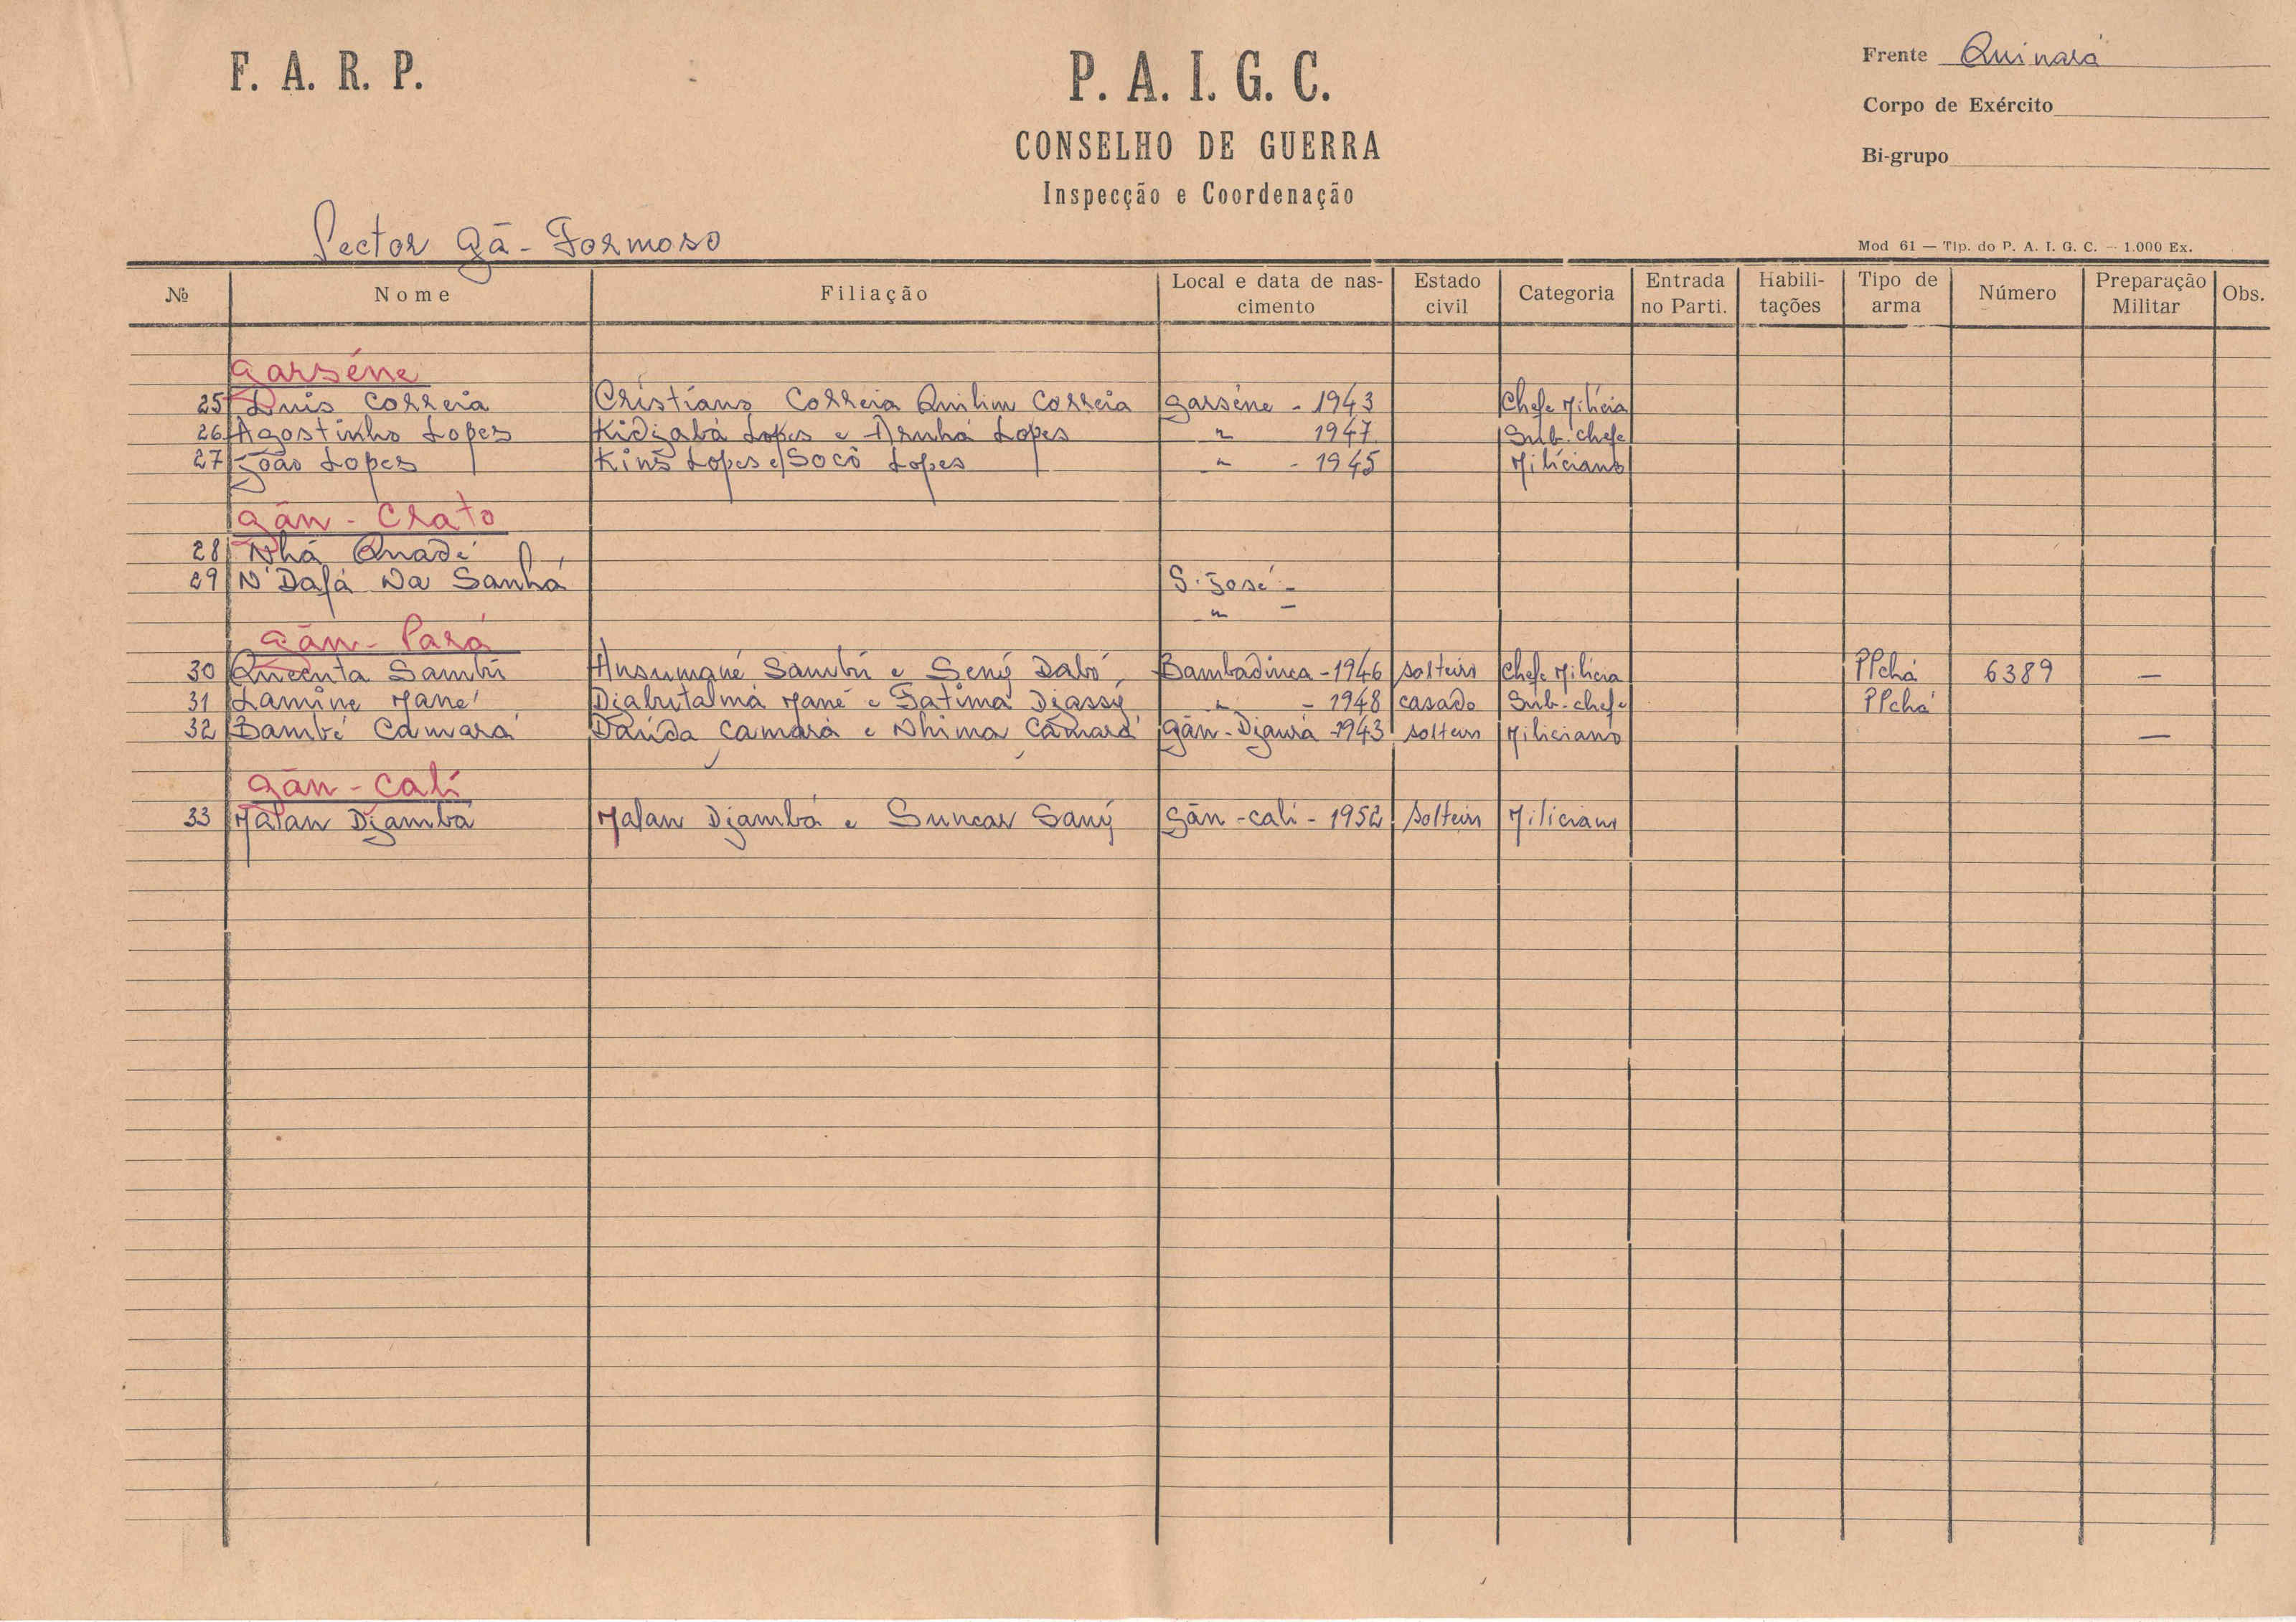 F. A. R. P.
P. A. I. G. C.
CONSELHO DE GUERRA
Inspecção e Coordenação
Frente Quinará
Corpo de Exército
Bi-grupo
Sector Gã - Formoso
Mod 61 — Tip. do P. A. I. G. C. — 1.000 Ex.
№ Nome Filiação Local e data de nas-cimento Estado civil Categoria Entrada no Parti. Habili-tações Tipo de arma Número Preparação Militar Obs.
Garséne
25 Luis Correia Cristiano Correia Quilim Correia Garséne - 1943 Chefe Milícia
26 Agostinho Lopes Kidjabá Lopes e Arnhá Lopes " 1947 Sub-chefe
27 João Lopes Kins Lopes e Socô Lopes " - 1945 Miliciano
Gãn - Crato
28 Nhá Quadé
29 N'Dafá Na Sanhá S. José -
" -
Gãn - Pará
30 Quecuta Sambú Ansumané Sambú e Seny Dabó Bambadinca - 1946 solteiro Chefe Milícia PPchá 6389 —
31 Lamine Mané Djabutalmá Mané e Fatima Djassy " - 1948 casado Sub-chefe PPchá
32 Bambé Camará Daúda Camará e Nhima Camará Gãn - Djaurá - 1943 solteiro Miliciano —
Gãn - Cali
33 Malan Djambá Malan Djambá e Suncar Sany Gãn - cali - 1952 solteiro Miliciano